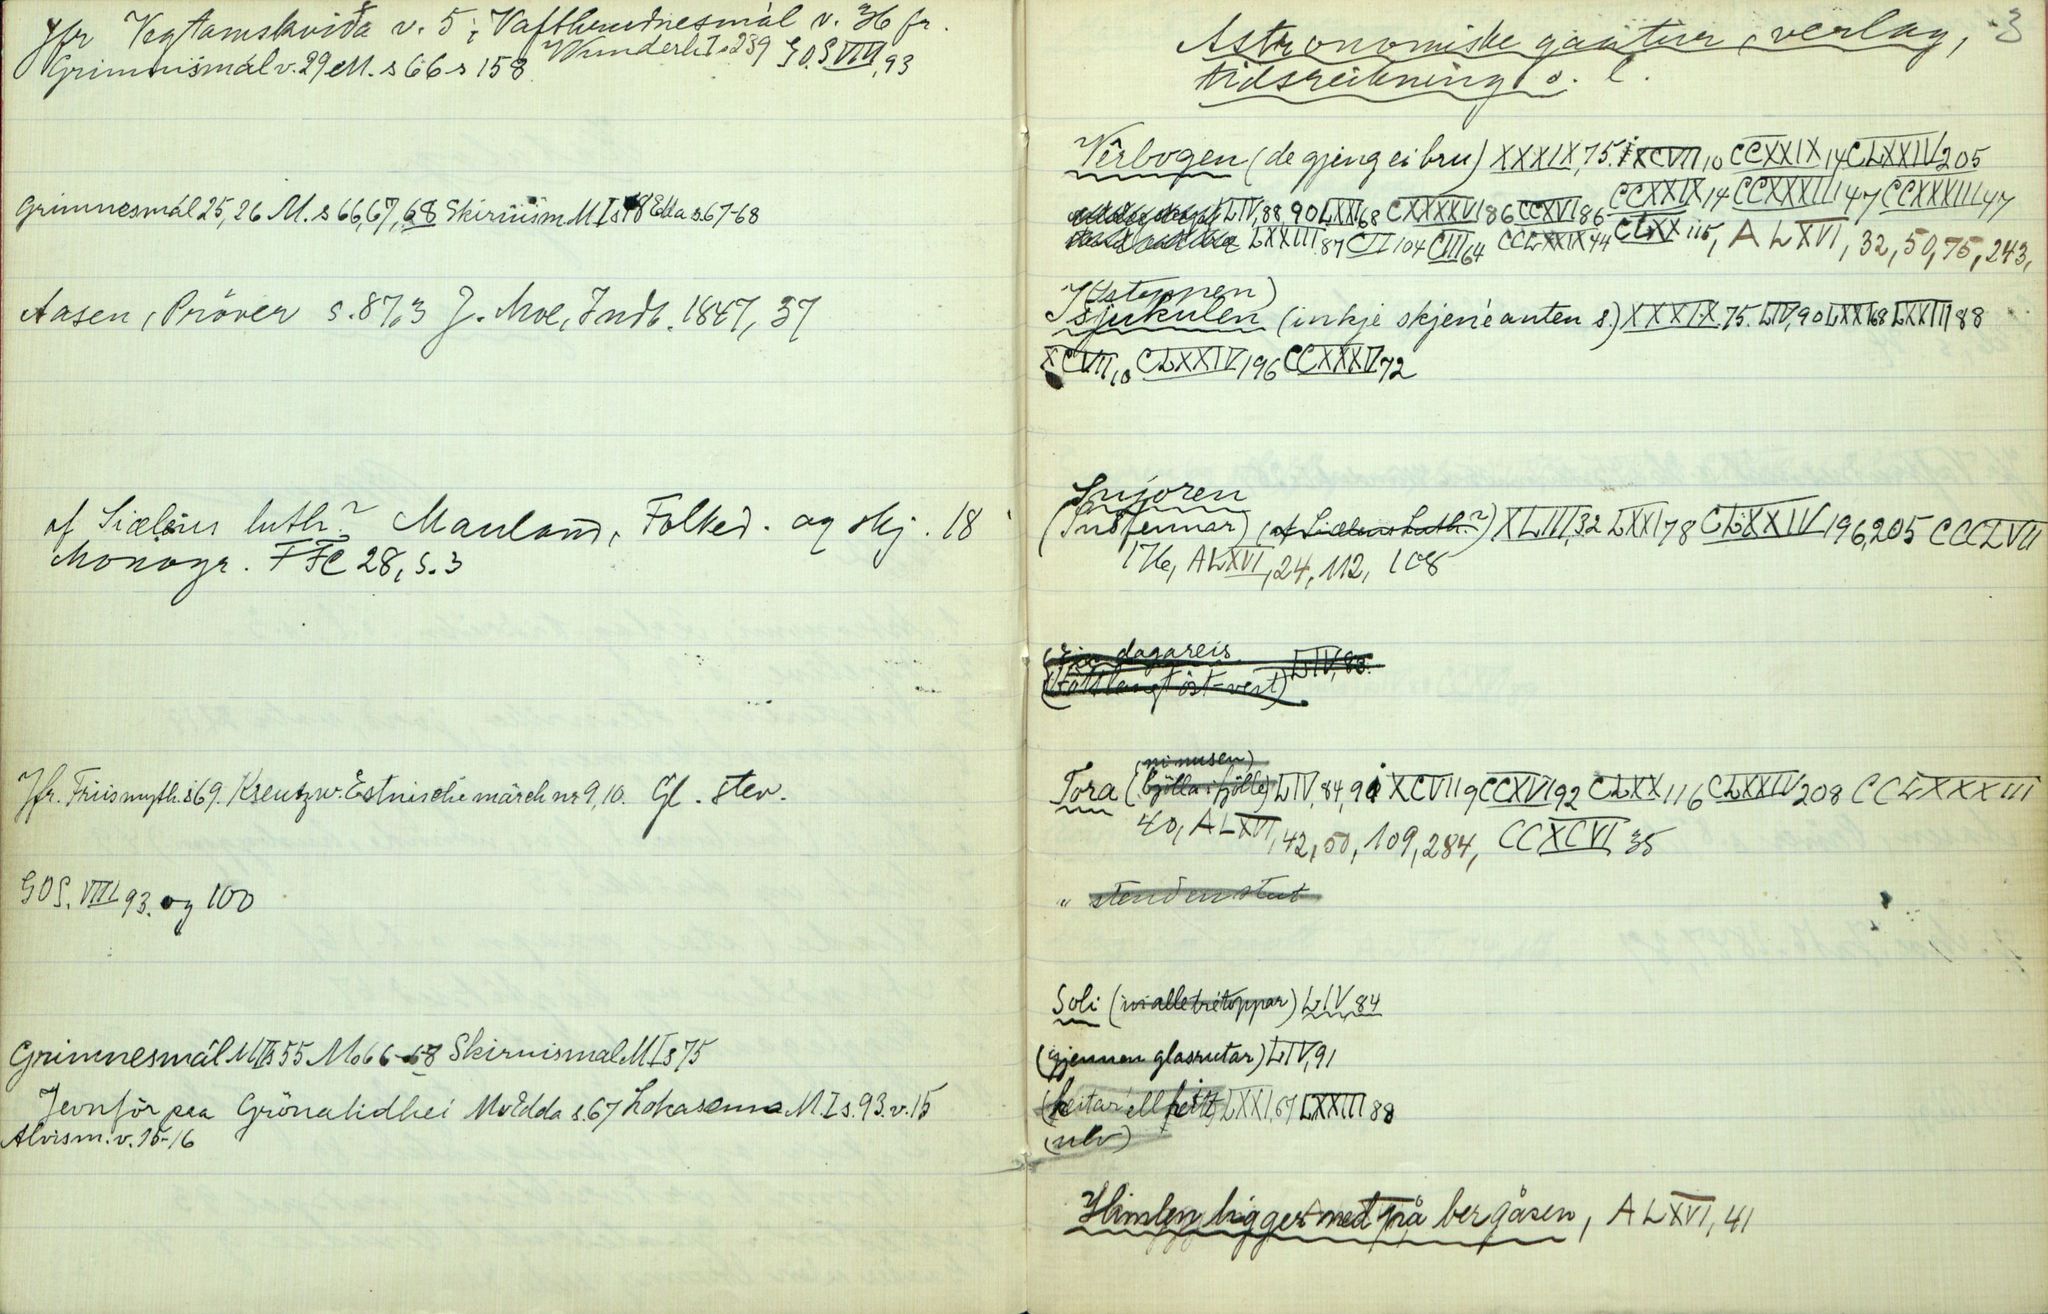 Jfr Vegtamskviða v. 5; Vafthrudnesmál v. 36 fr.
Grimnismál v. 29 M. s 66 s 158 Wunderh I s 239 GOS VIII, 93
Grimnesmál 25, 26 M. s 66, 67, 68 Skirnism M I s 78 Edda s. 67-68
Aasen, Pröver s. 87,3 J. Moe, Indb. 1847, 37
af luth? Mauland, Folked. og skj. 18
Monogr. FFC 28, s. 3
Jfr. Friis myth. s 69. Kreutzw. Estnische märch nr 9, 10. Gl. stev.
GOS. VIII 93. og 100
Grimnesmál M I s 55 M s 66-68 Skirnismal M I s 75
Jevnför paa Grönalidhei M. Edda s. 67 Lokasenna M. I s. 93. v. 15
Alvism. v. 15-16
3
Astronomiske gaatur, verlag,
tidsreikning o. l.
Vêrbogen (de gjeng ei bru) XXXIX, 75. XCVII 10 CCXXIX 14 CLXXIV 205
LIV, 88, 90 LXXI 68 CXXXXVI 86 CCXVI 86 CCXXIX 14 CCXXXIII 47 CCXXXIII 47
LXXIII 87 CII 104 CIII 64 CCLXXIX 44 CLXX 115, A LXVI, 32, 50, 75, 243,
(Istappen)
Isjukulen (inkje skjene anten s.) XXXIX. 75. LIV, 90 LXXI 68 LXXIII 88
XCVII, 10 CLXXIV 196 CCXXXV 72
Snjoren
(Snöfennar) XLIII, 32 LXXI 78 CLXXIV 196, 205 CCCLVII
176, A LXVI, 24, 112, 108
(Ein dagareis
(tått langt öst-vest) LIV, 83.
(ni nusen)
Tora (bjölla i fjölle) LIV, 84, 91 XCVII 9 CCXVI 92 CLXX 116 CLXXIV 208 CCLXXXIII
40, A LXVI, 42, 50, 109, 284, CCXCVI 35
" stend en stut
Soli (ivi alle trétoppar) LIV, 84
(gjennom glasrutar) LIV, 91
ell LXXI, 67 LXXIII 88
(ulv)
Himlen ligger ned på bergåsen, A LXVI, 41